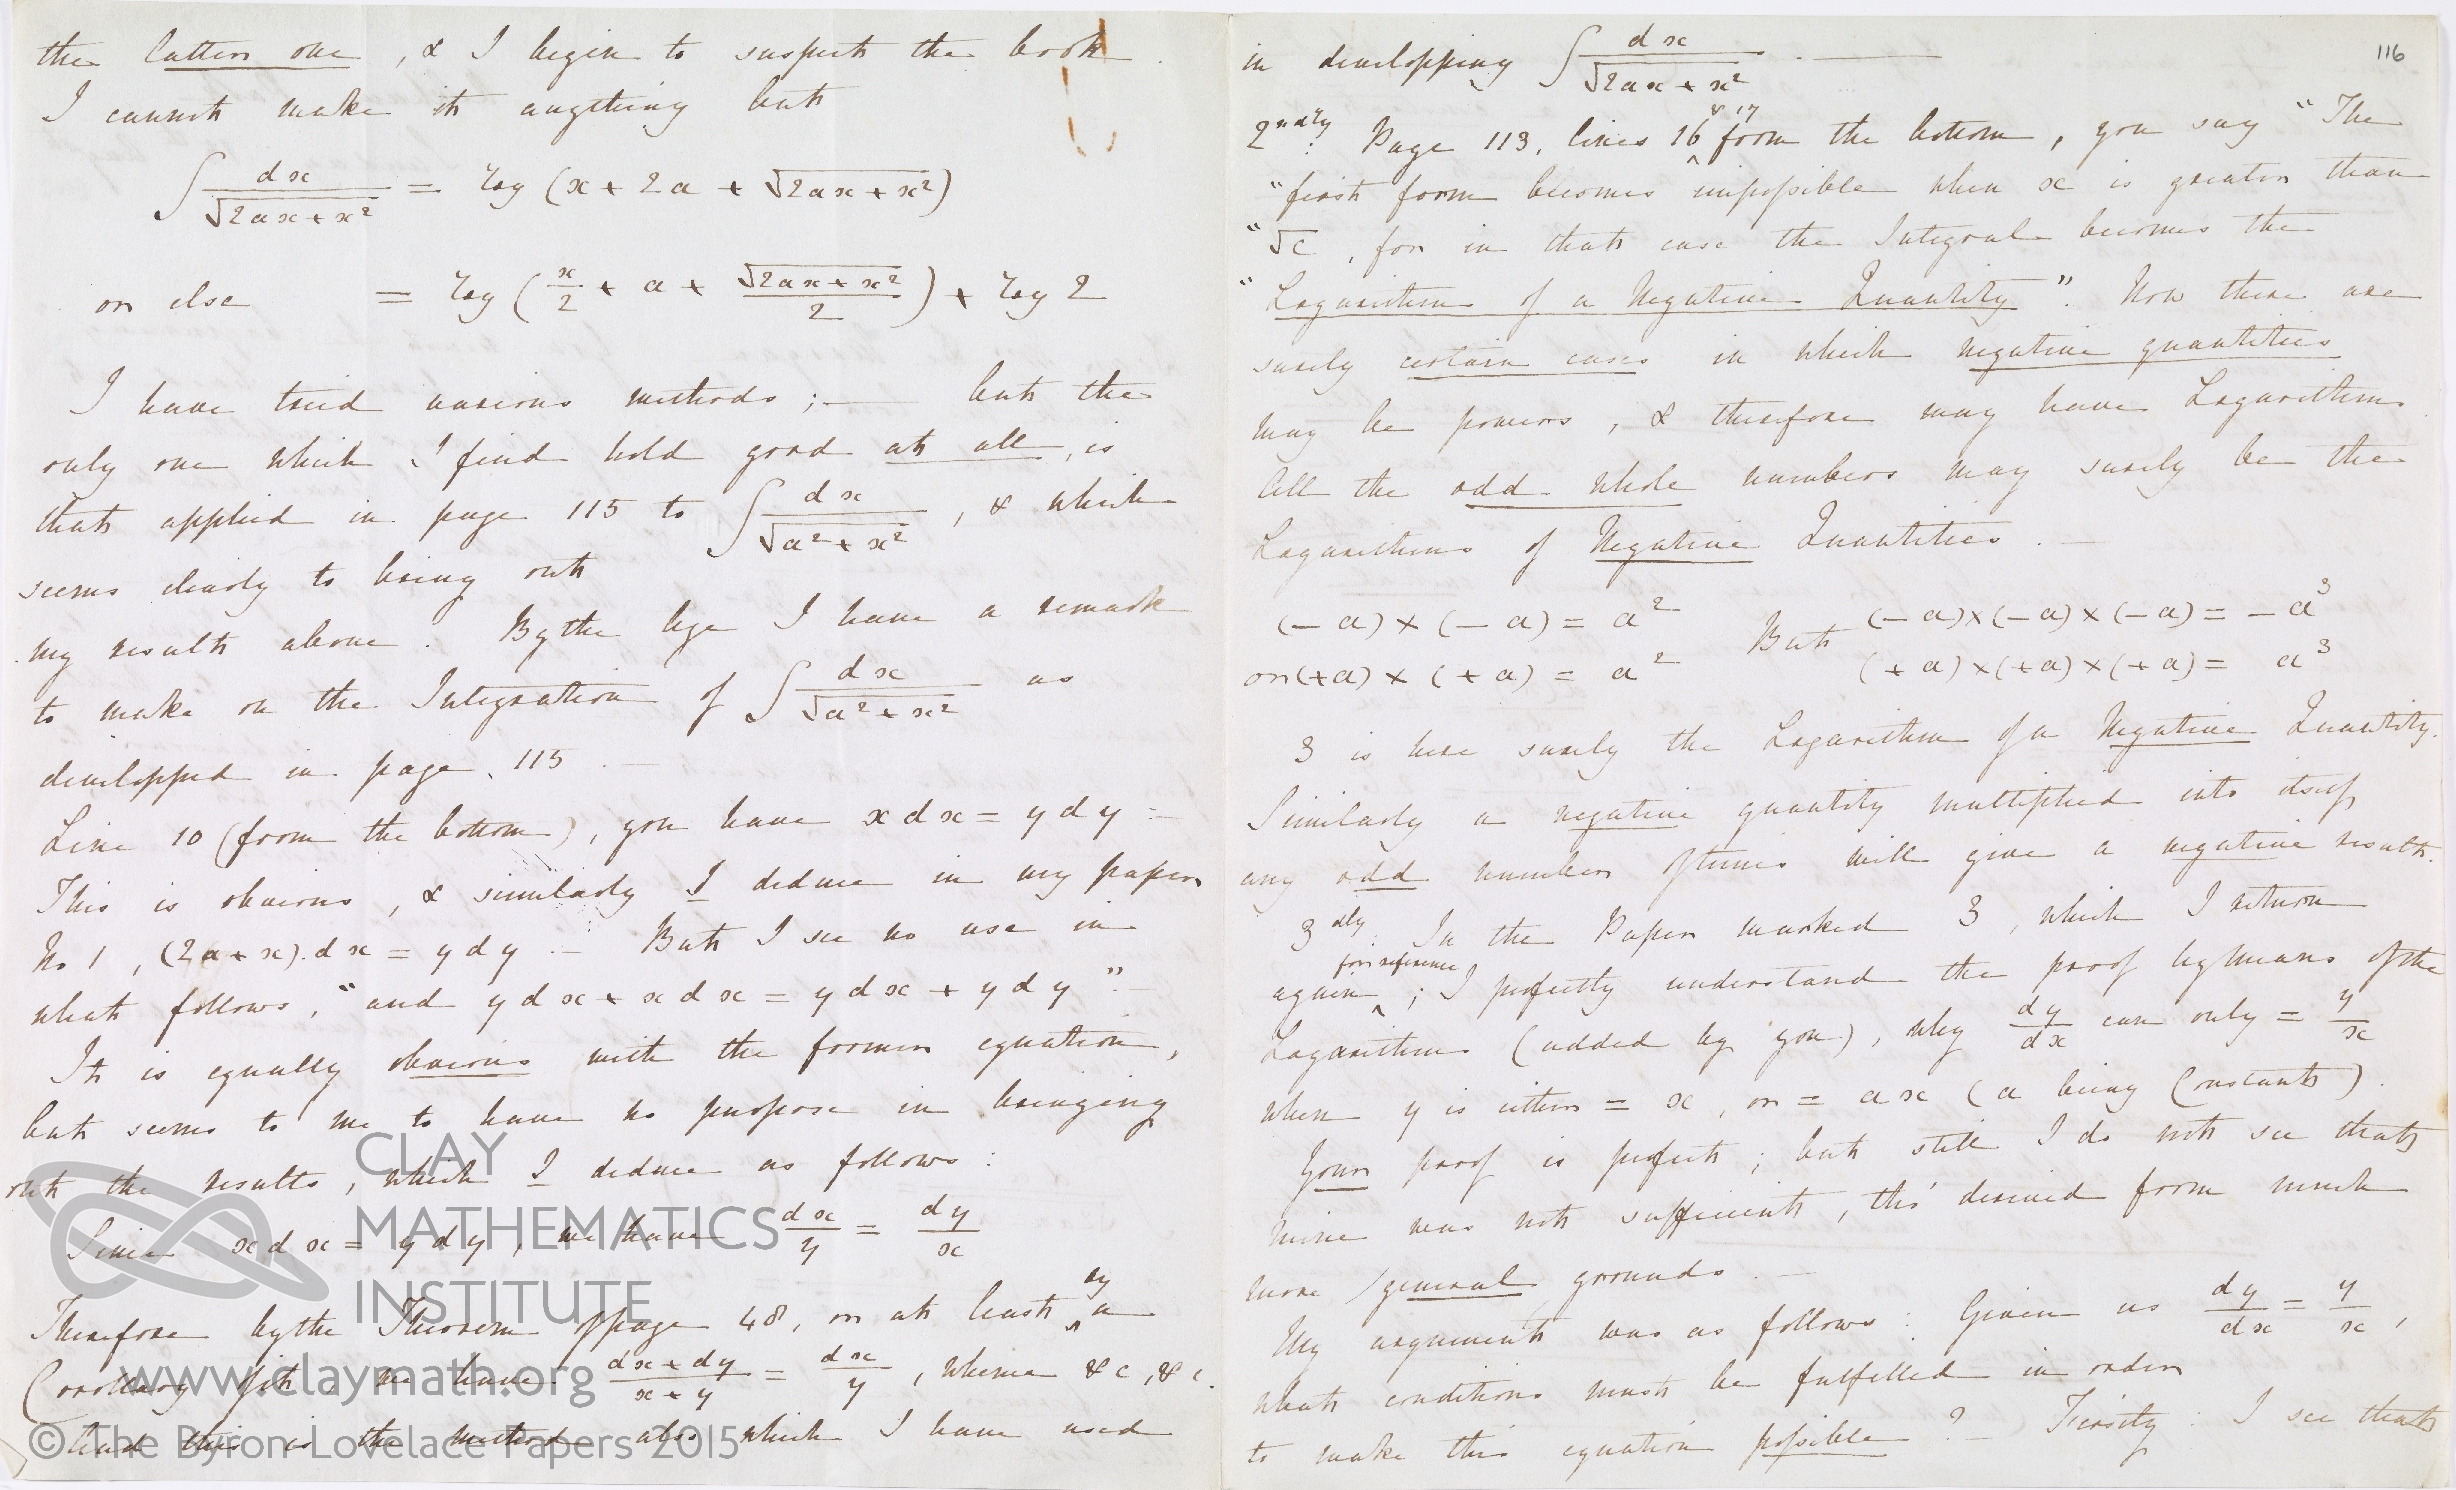 the latter one, & I begin to suspect the book.
I cannot make it anything but
∫ dx/√(2ax + x²) = log (x + 2a + √(2ax + x²))
or else = log (x/2 + a + √(2ax + x²)/2) + log 2
I have tried various methods; — but the
only one which I find hold good at all, is
that applied in page 115 to ∫ dx/√(a² + x²), & which
seems clearly to bring out
my result above. By the bye I have a remark
to make on the Integration of ∫ dx/√(a² + x²) as
developped in page 115. —
Line 10 (from the bottom), you have x dx = y dy —
This is obvious, & similarly I deduce in my paper
No 1, (2a + x).dx = y dy — But I see no use in
what follows, "and y dx + x dx = y dx + y dy". —
It is equally obvious with the former equation,
but seems to me to have no purpose in bringing
out the results, which I deduce as follows:
Since x dx = y dy, we have dx/y = dy/x
Therefore by the Theorem of page 48, or at least by a
Corollary of it, we have (dx + dy)/(x + y) = dx/y, whence &c, &c.
And this is the method also which I have used
116
in developping ∫ dx/√(2ax + x²). —
2ndly. Page 113, lines 16 & 17 from the bottom, you say "The
"first form becomes impossible when x is greater than
"√c, for in that case the Integral becomes the
"Logarithm of a Negative Quantity". Now there are
surely certain cases in which negative quantities
may be powers, & therefore may have Logarithms.
All the odd whole numbers may surely be the
Logarithms of Negative Quantities. —
(− a) × (− a) = a² But (− a) × (− a) × (− a) = − a³
or (+ a) × (+ a) = a² (+ a) × (+ a) × (+ a) = a³
3 is here surely the Logarithm of a Negative Quantity.
Similarly a negative quantity multiplied into itself
any odd number of times will give a negative result.
3dly. In the Paper marked 3, which I return
again for reference; I perfectly understand the proof by means of the
Logarithms (added by you), why dy/dx can only = y/x
when y is either = x, or = ax (a being Constant).
Your proof is perfect; but still I do not see that
mine was not sufficient, tho' derived from much
more general grounds. —
My argument was as follows: Given us dy/dx = y/x,
what conditions must be fulfilled in order
to make this equation possible? — Firstly: I see that
CLAY
MATHEMATICS
INSTITUTE
www.claymath.org
© The Byron-Lovelace Papers 2015